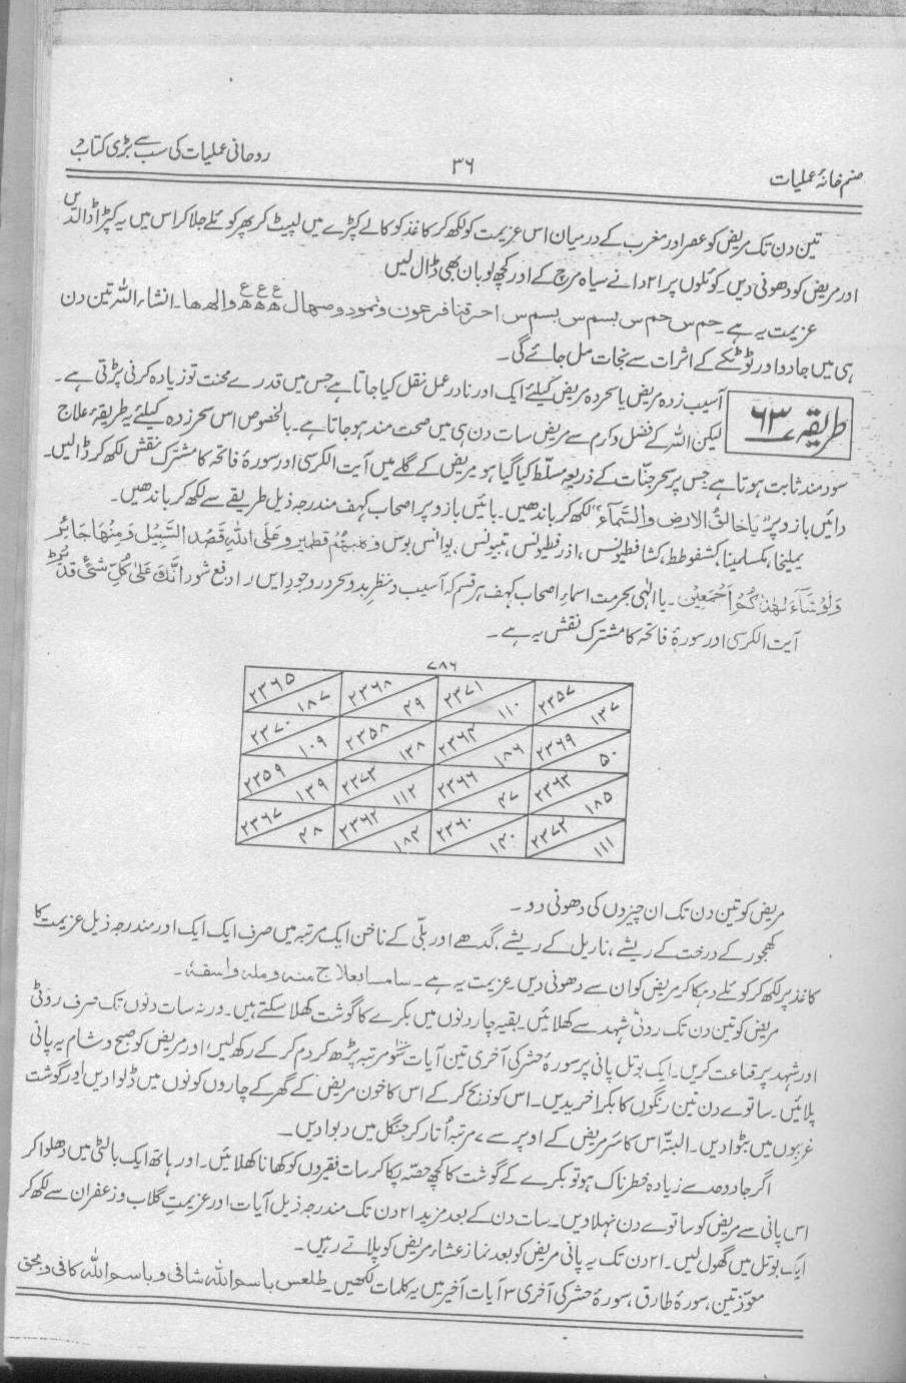 صنم خانۂ عملیات ۳۶ روحانی عملیات کی سب سے بڑی کتاب
تین دن تک مریض کو عصر اور مغرب کے درمیان اس عزیمت کو لکھ کر کاغذ کو کالے کپڑے میں لپیٹ کر پھر کوئلے جلا کر اس میں یہ کپڑا ڈالدیں
اور مریض کو دھونی دیں۔ کوئلوں پر ۲۱ دانے سیاہ مرچ کے اور کچھ لوبان بھی ڈال لیں
عزیمت یہ ہے۔ حم س حم س بسم س بسم س احرقنا فرعون و نمود و صہال ھ ھ ھ ع ع ع والھ ھا۔ انشاء اللہ تین دن
ہی میں جادو اور ٹوٹکے کے اثرات سے نجات مل جائے گی۔
طریقہ ۶۳
آسیب زدہ مریض یا سحر زدہ مریض کیلئے ایک اور نادر عمل نقل کیا جاتا ہے جس میں قدرے محنت تو زیادہ کرنی پڑتی ہے۔
لیکن اللہ کے فضل و کرم سے مریض سات دن ہی میں صحت مند ہو جاتا ہے۔ بالخصوص اس سحر زدہ کیلئے یہ طریقۂ علاج
سود مند ثابت ہوتا ہے جس پر سحر جنّات کے ذریعہ مسلّط کیا گیا ہو۔ مریض کے گلے میں آیت الکرسی اور سورۂ فاتحہ کا مشترک نقش لکھ کر ڈالیں۔
دائیں بازو پر "یَا خَالِقُ الارضِ وَالسَّمَآءِ" لکھ کر باندھیں۔ بائیں بازو پر اصحاب کہف مندرجہ ذیل طریقے سے لکھ کر باندھیں۔
یملیخا، مکسلمینا، کشفوطط، کشافطیونس، اذرفطیونس، تبیونس، یوانس بوس وکلبہم قطمیر و عَلَی اللہِ قَصْدُ السَّبِیْلِ وَمِنْهَا جَائِرٌ
وَلَوْ شَآءَ لَهَدٰكُمْ اَجْمَعِیْن۔ یا الٰہی بحرمت اسماء اصحاب کہف ہر قسم کہ آسیب و نظرِ بد و سحر در وجود ایں را دفع شود انَّكَ عَلٰى كُلِّ شَیْءٍ قَدِیْرٌ
آیت الکرسی اور سورۂ فاتحہ کا مشترک نقش یہ ہے۔
۷۸۶
۲۳۶۵ ۱۸۷ ۲۳۶۸ ۴۹ ۲۳۷۱ ۱۱۰ ۲۳۵۷ ۱۳۷
۲۳۷۰ ۱۰۹ ۲۳۵۸ ۱۳۸ ۲۳۶۴ ۱۸۶ ۲۳۶۹ ۵۰
۲۳۵۹ ۱۳۹ ۲۳۷۳ ۱۱۲ ۲۳۶۶ ۴۷ ۲۳۶۳ ۱۸۵
۲۳۶۷ ۴۸ ۲۳۶۲ ۱۸۴ ۲۳۶۰ ۱۴۰ ۲۳۷۲ ۱۱۱
مریض کو تین دن تک ان چیزوں کی دھونی دو۔
کھجور کے درخت کے ریشے، ناریل کے ریشے، گدھے اور بلّی کے ناخن ایک مرتبہ میں صرف ایک ایک اور مندرجہ ذیل عزیمت کا
کاغذ پر لکھ کر کوئلے دہکا کر مریض کو ان سے دھونی دیں۔ عزیمت یہ ہے۔ سامسا بعلاج منہ و ملہ واسفہ۔
مریض کو تین دن تک روٹی شہد سے کھلائیں۔ بقیہ چار دنوں میں بکرے کا گوشت کھلا سکتے ہیں۔ ورنہ سات دنوں تک صرف روٹی
اور شہد پر قناعت کریں۔ ایک بوتل پانی پر سورۂ حشر کی آخری تین آیات سو مرتبہ پڑھ کر دم کر کے رکھ لیں اور مریض کو صبح و شام یہ پانی
پلائیں۔ ساتوے دن تین رنگوں کا بکرا خریدیں۔ اس کو ذبح کر کے اس کا خون مریض کے گھر کے چاروں کونوں میں ڈلوا دیں اور گوشت
غریبوں میں بٹوا دیں۔ البتّہ اس کا سَر مریض کے اوپر سے ۷ مرتبہ اُتار کر جنگل میں دبوا دیں۔
اگر جادو حد سے زیادہ خطرناک ہو تو بکرے کے گوشت کا کچھ حصّہ پکا کر سات فقیروں کو کھانا کھلائیں۔ اور ہاتھ ایک بالٹی میں دھلوا کر
اس پانی سے مریض کو ساتوے دن نہلا دیں۔ سات دن کے بعد مزید ۲۱ دن تک مندرجہ ذیل آیات اور عزیمت گلاب و زعفران سے لکھ کر
ایک بوتل میں گھول لیں۔ ۲۱ دن تک یہ پانی مریض کو بعد نماز عشاء مریض کو پلاتے رہیں۔
معوّذتین، سورۂ طارق، سورۂ حشر کی آخری ۳ آیات آخیر میں یہ کلمات لکھیں۔ طلعس باسم اللہ شافی و باسم اللہ کافی و بحق